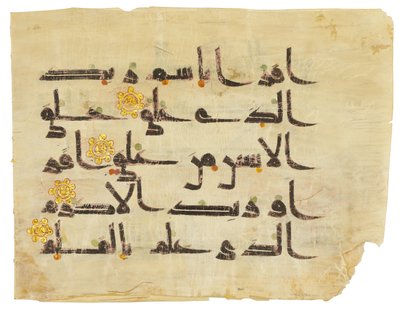 اقرا باسم ربك
الذي خلق خلق
الانسن من علق اقر
ا وربك الاكرم
الذي علم بالقلم